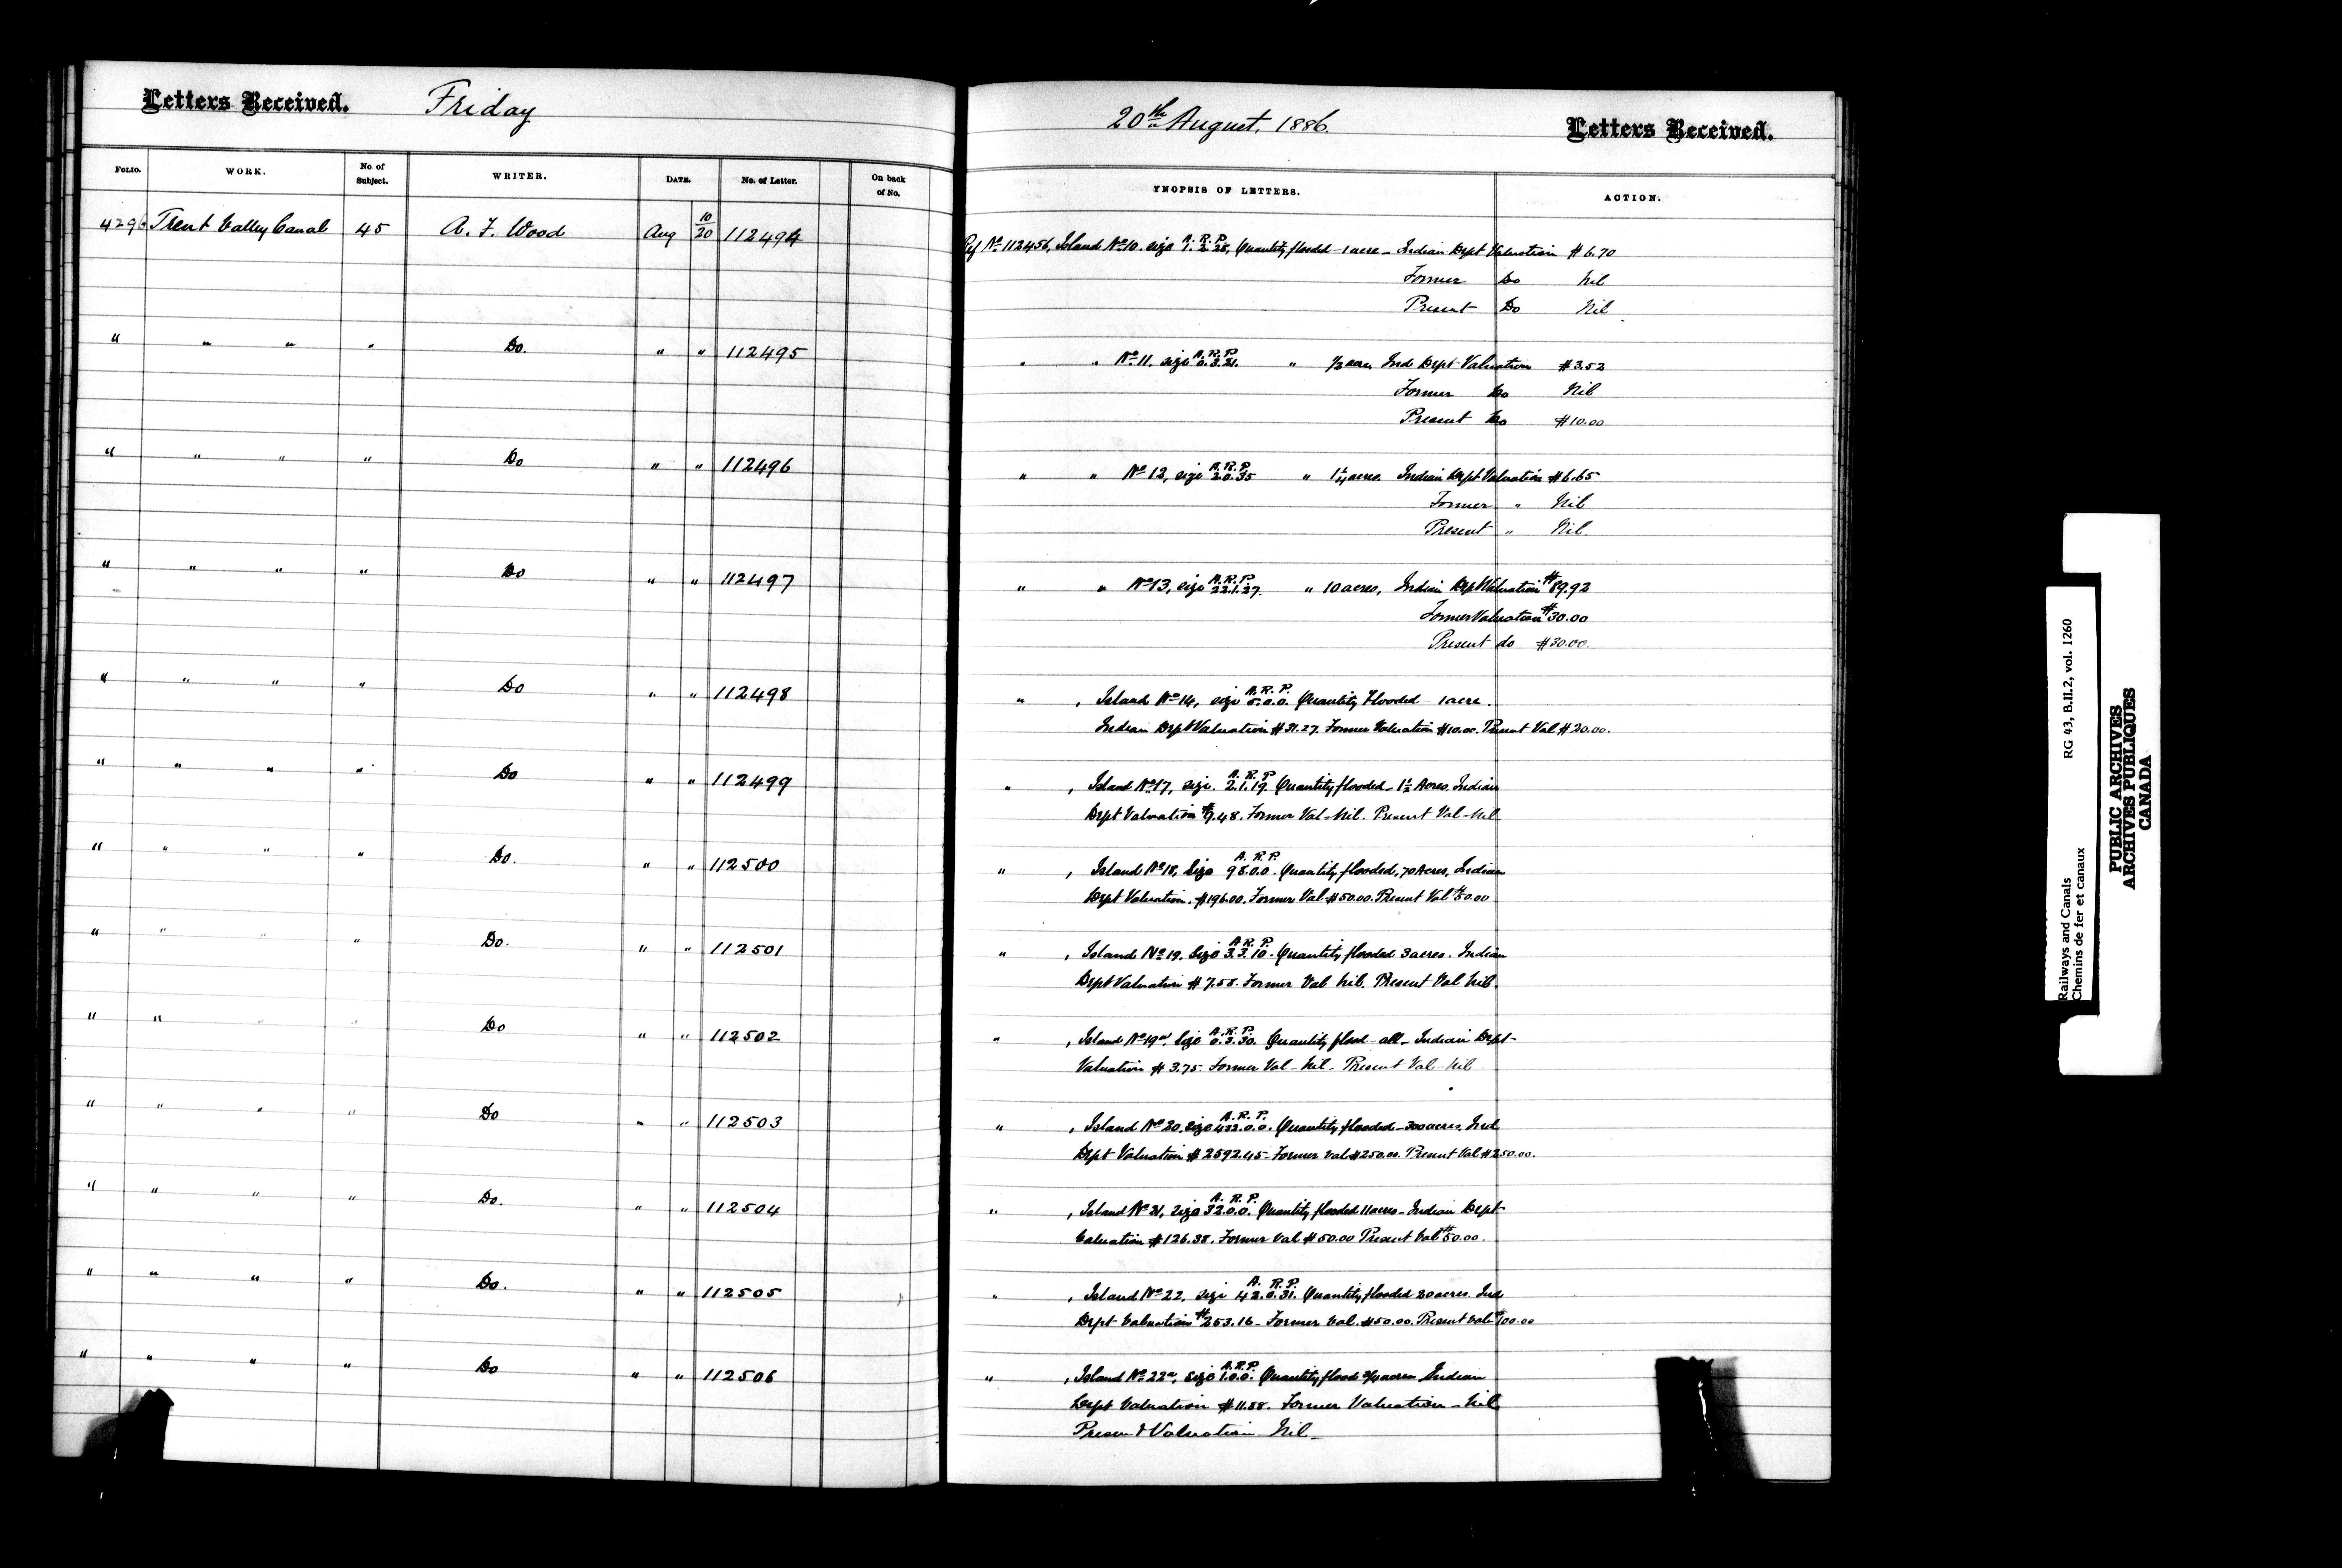 Letters Received. Friday
20th August, 1886. Letters Received.
FOLIO. WORK. No of Subject. WRITER. DATE. No. of Letter. On back of No.
YNOPSIS OF LETTERS. ACTION.
4296 Trent Valley Canal 45 A. F. Wood Aug 10/20 112494
Ref No 112456, Island No 10. size A. R. P. 1. 2. 28, Quantity flooded - 1 acre - Indian Dept Valuation $6.70
Former Do Nil
Present Do Nil
" " " " Do. " " 112495
" " No 11. size A. R. P. 0. 3. 21. " 1/2 acre, Ind Dept Valuation $3.52
Former Do Nil
Present Do $10.00
" " " " Do " " 112496
" " No 12, size A. R. P 2. 0. 35 " 1 1/4 acres. Indian Dept Valuation $6.65
Former " Nil
Present " Nil.
" " " " Do " " 112497
" " No 13, size A. R. P 22. 1. 27. " 10 acres, Indian Dept Valuation $89.92
Former Valuation $30.00
Present do $30.00.
" " " " Do " " 112498
" , Island No 14, size A. R. P. 5. 0. 0. Quantity Flooded 1 acre.
Indian Dept Valuation $31.27. Former Valuation $10.00. Present Val $20.00.
" " " " Do " " 112499
" , Island No 17, size. A. R. P 2. 1. 19. Quantity flooded - 1 1/2 Acres. Indian
Dept Valuation $9.48. Former Val - Nil. Present Val - Nil
" " " " Do. " " 112500
" , Island No 18, Size A. R. P. 98. 0. 0. Quantity flooded, 70 Acres, Indian
Dept Valuation. $196.00. Former Val $50.00. Present Val $50.00
" " " " Do. " " 112501
" , Island No 19. Size A. R. P. 3. 3. 10. Quantity flooded 3 acres. Indian
Dept Valuation $7.58. Former Val Nil. Present Val Nil.
" " " " Do " " 112502
" , Island No 19a, Size A. R. P. 0. 3. 30. Quantity flood - all - Indian Dept
Valuation $3.75 Former Val - Nil - Present Val - Nil
" " " " Do " " 112503
" , Island No 20, size A. R. P. 432. 0. 0. Quantity flooded - 300 acres. Ind
Dept Valuation $2592.45 - Former Val $250.00. Present Val $250.00.
" " " " Do. " " 112504
" , Island No 21, size A. R. P. 32. 0. 0. Quantity flooded 11 acres - Indian Dept
Valuation $126.38. Former Val $50.00 Present Val $50.00.
" " " " Do. " " 112505
" , Island No 22, size A. R. P. 42. 0. 31. Quantity flooded 20 acres. Ind
Dept Valuation $253.16 - Former Val. $50.00. Present Val $100.00
" " " " Do " " 112506
" , Island No 22a, size A. R. P. 1. 0. 0. Quantity flood 3/4 acres Indian
Dept Valuation $11.88. Former Valuation - Nil
Present Valuation Nil -
Railways and Canals RG 43, B.II.2, vol. 1260
Chemins de fer et canaux
PUBLIC ARCHIVES
ARCHIVES PUBLIQUES
CANADA